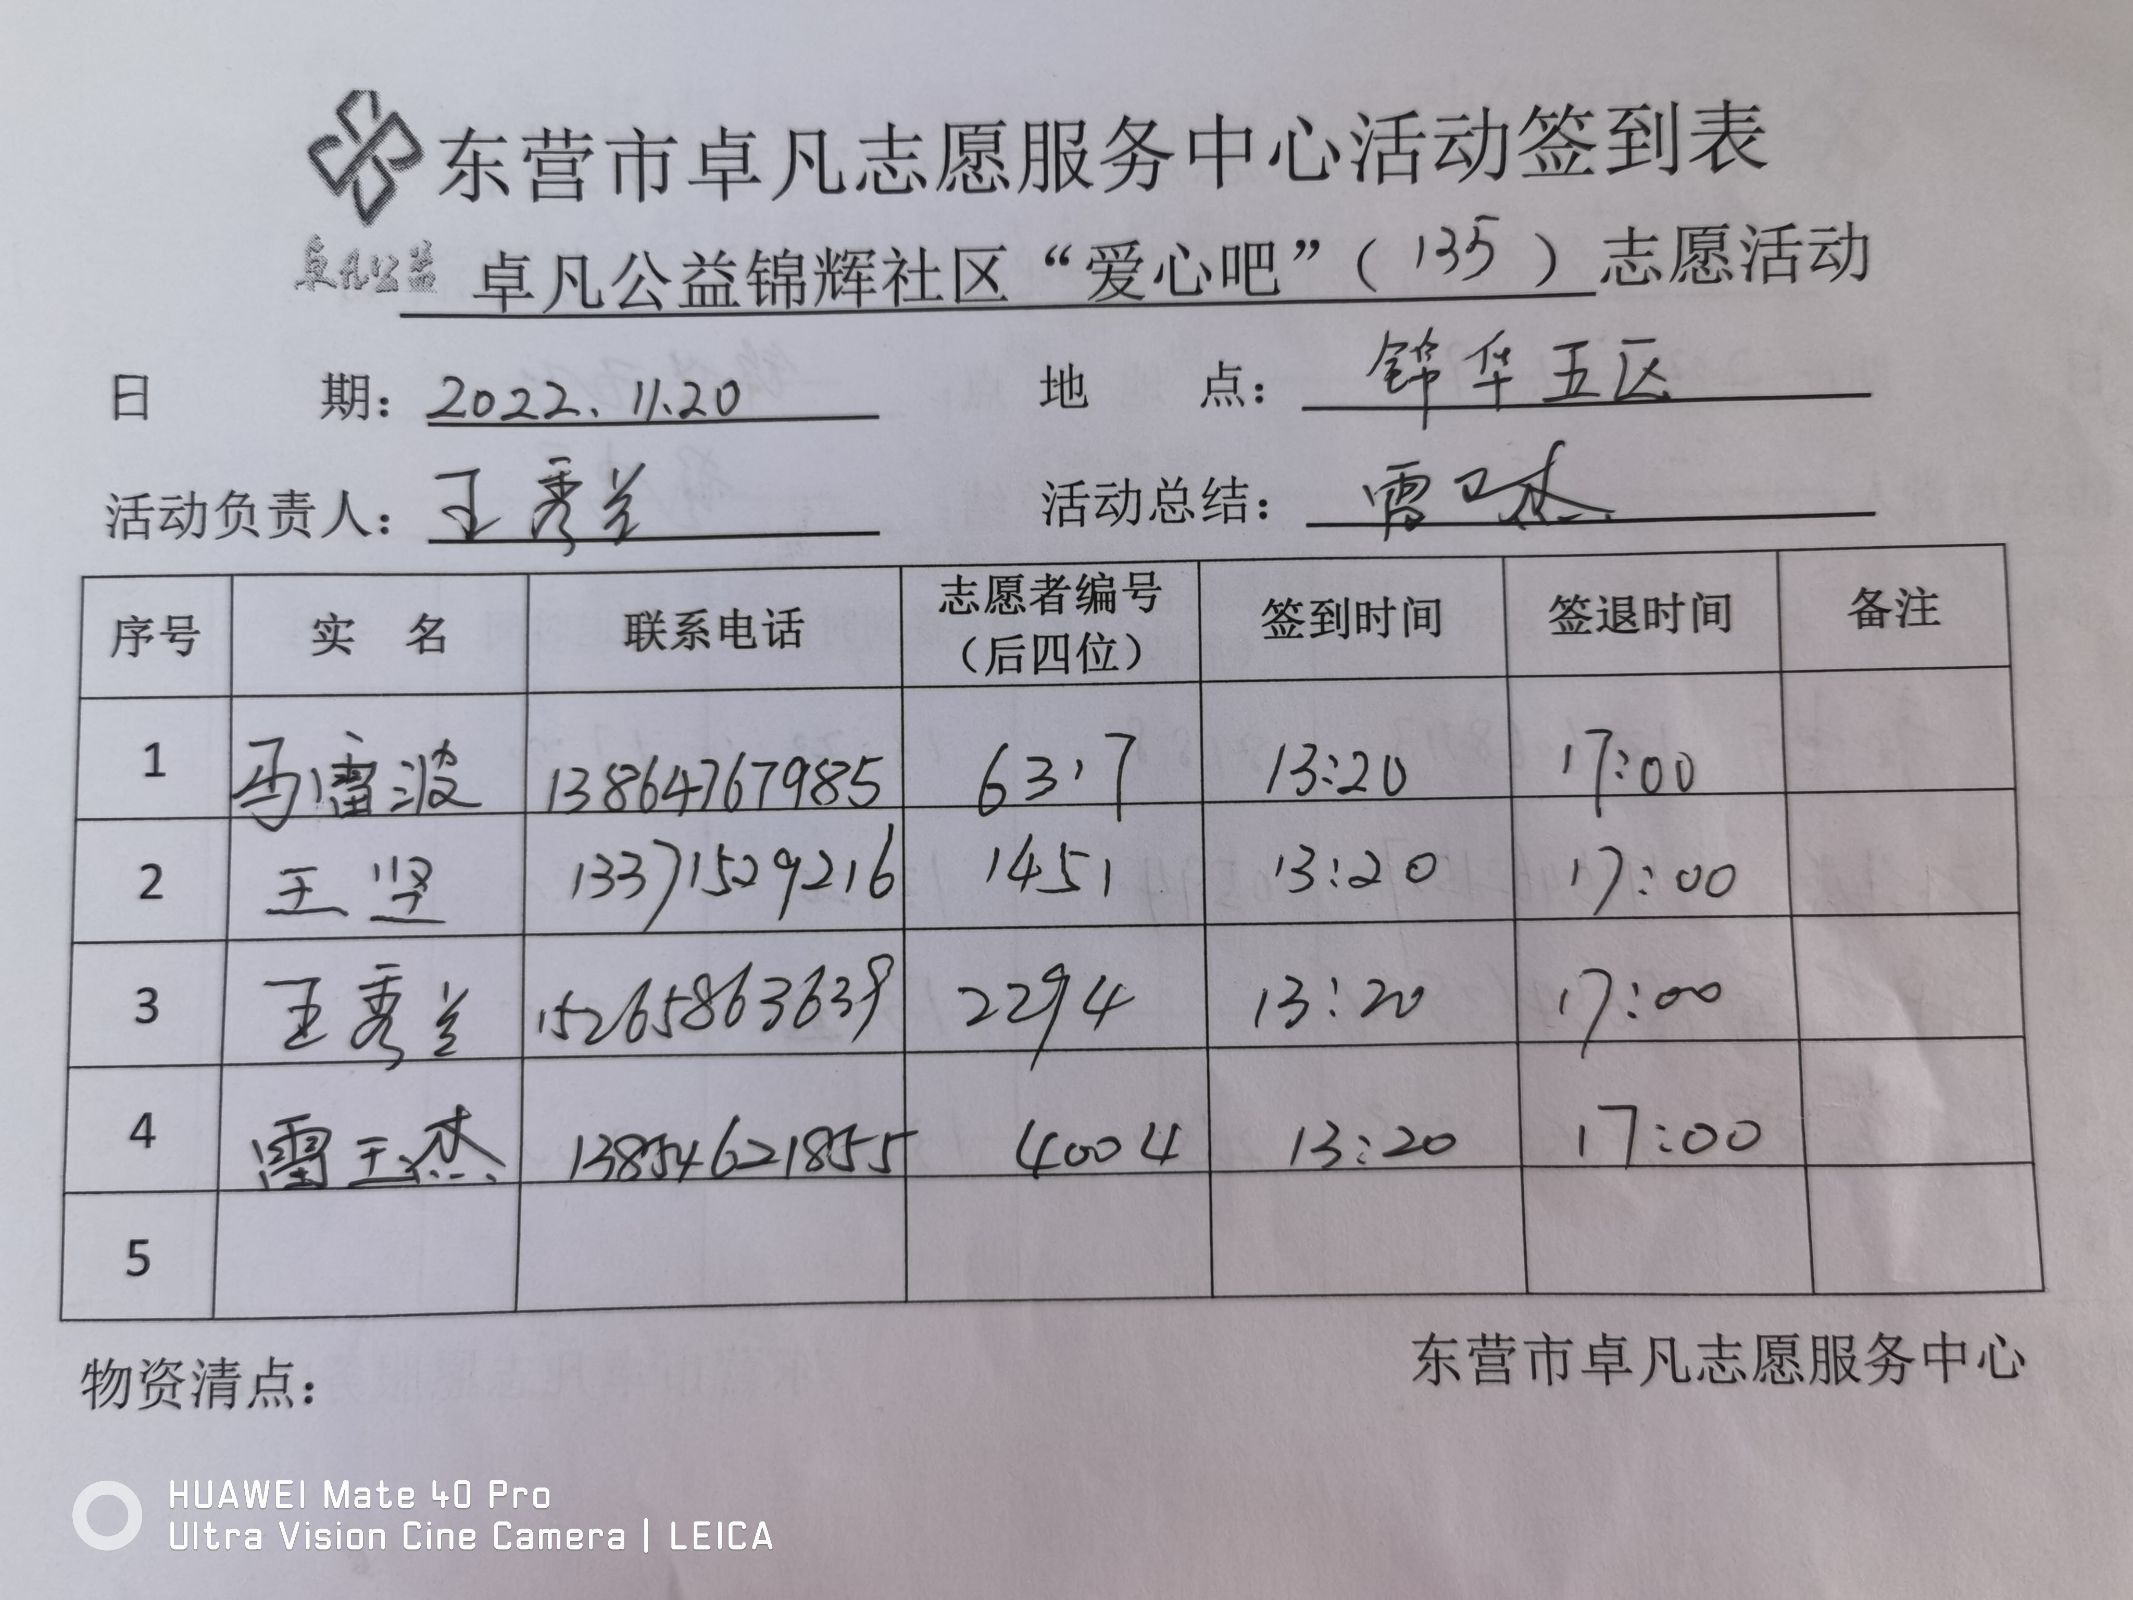 东营市卓凡志愿服务中心活动签到表
卓凡公益 卓凡公益锦辉社区“爱心吧”（135）志愿活动
日 期：2022.11.20 地 点：锦华五区
活动负责人：王秀兰 活动总结：雷玉杰
序号 实 名 联系电话 志愿者编号（后四位） 签到时间 签退时间 备注
1 马雷波 13864767985 6317 13:20 17:00
2 王坚 13371529216 1451 13:20 17:00
3 王秀兰 15265863639 2294 13:20 17:00
4 雷玉杰 13854621855 4004 13:20 17:00
5
物资清点： 东营市卓凡志愿服务中心
HUAWEI Mate 40 Pro
Ultra Vision Cine Camera | LEICA